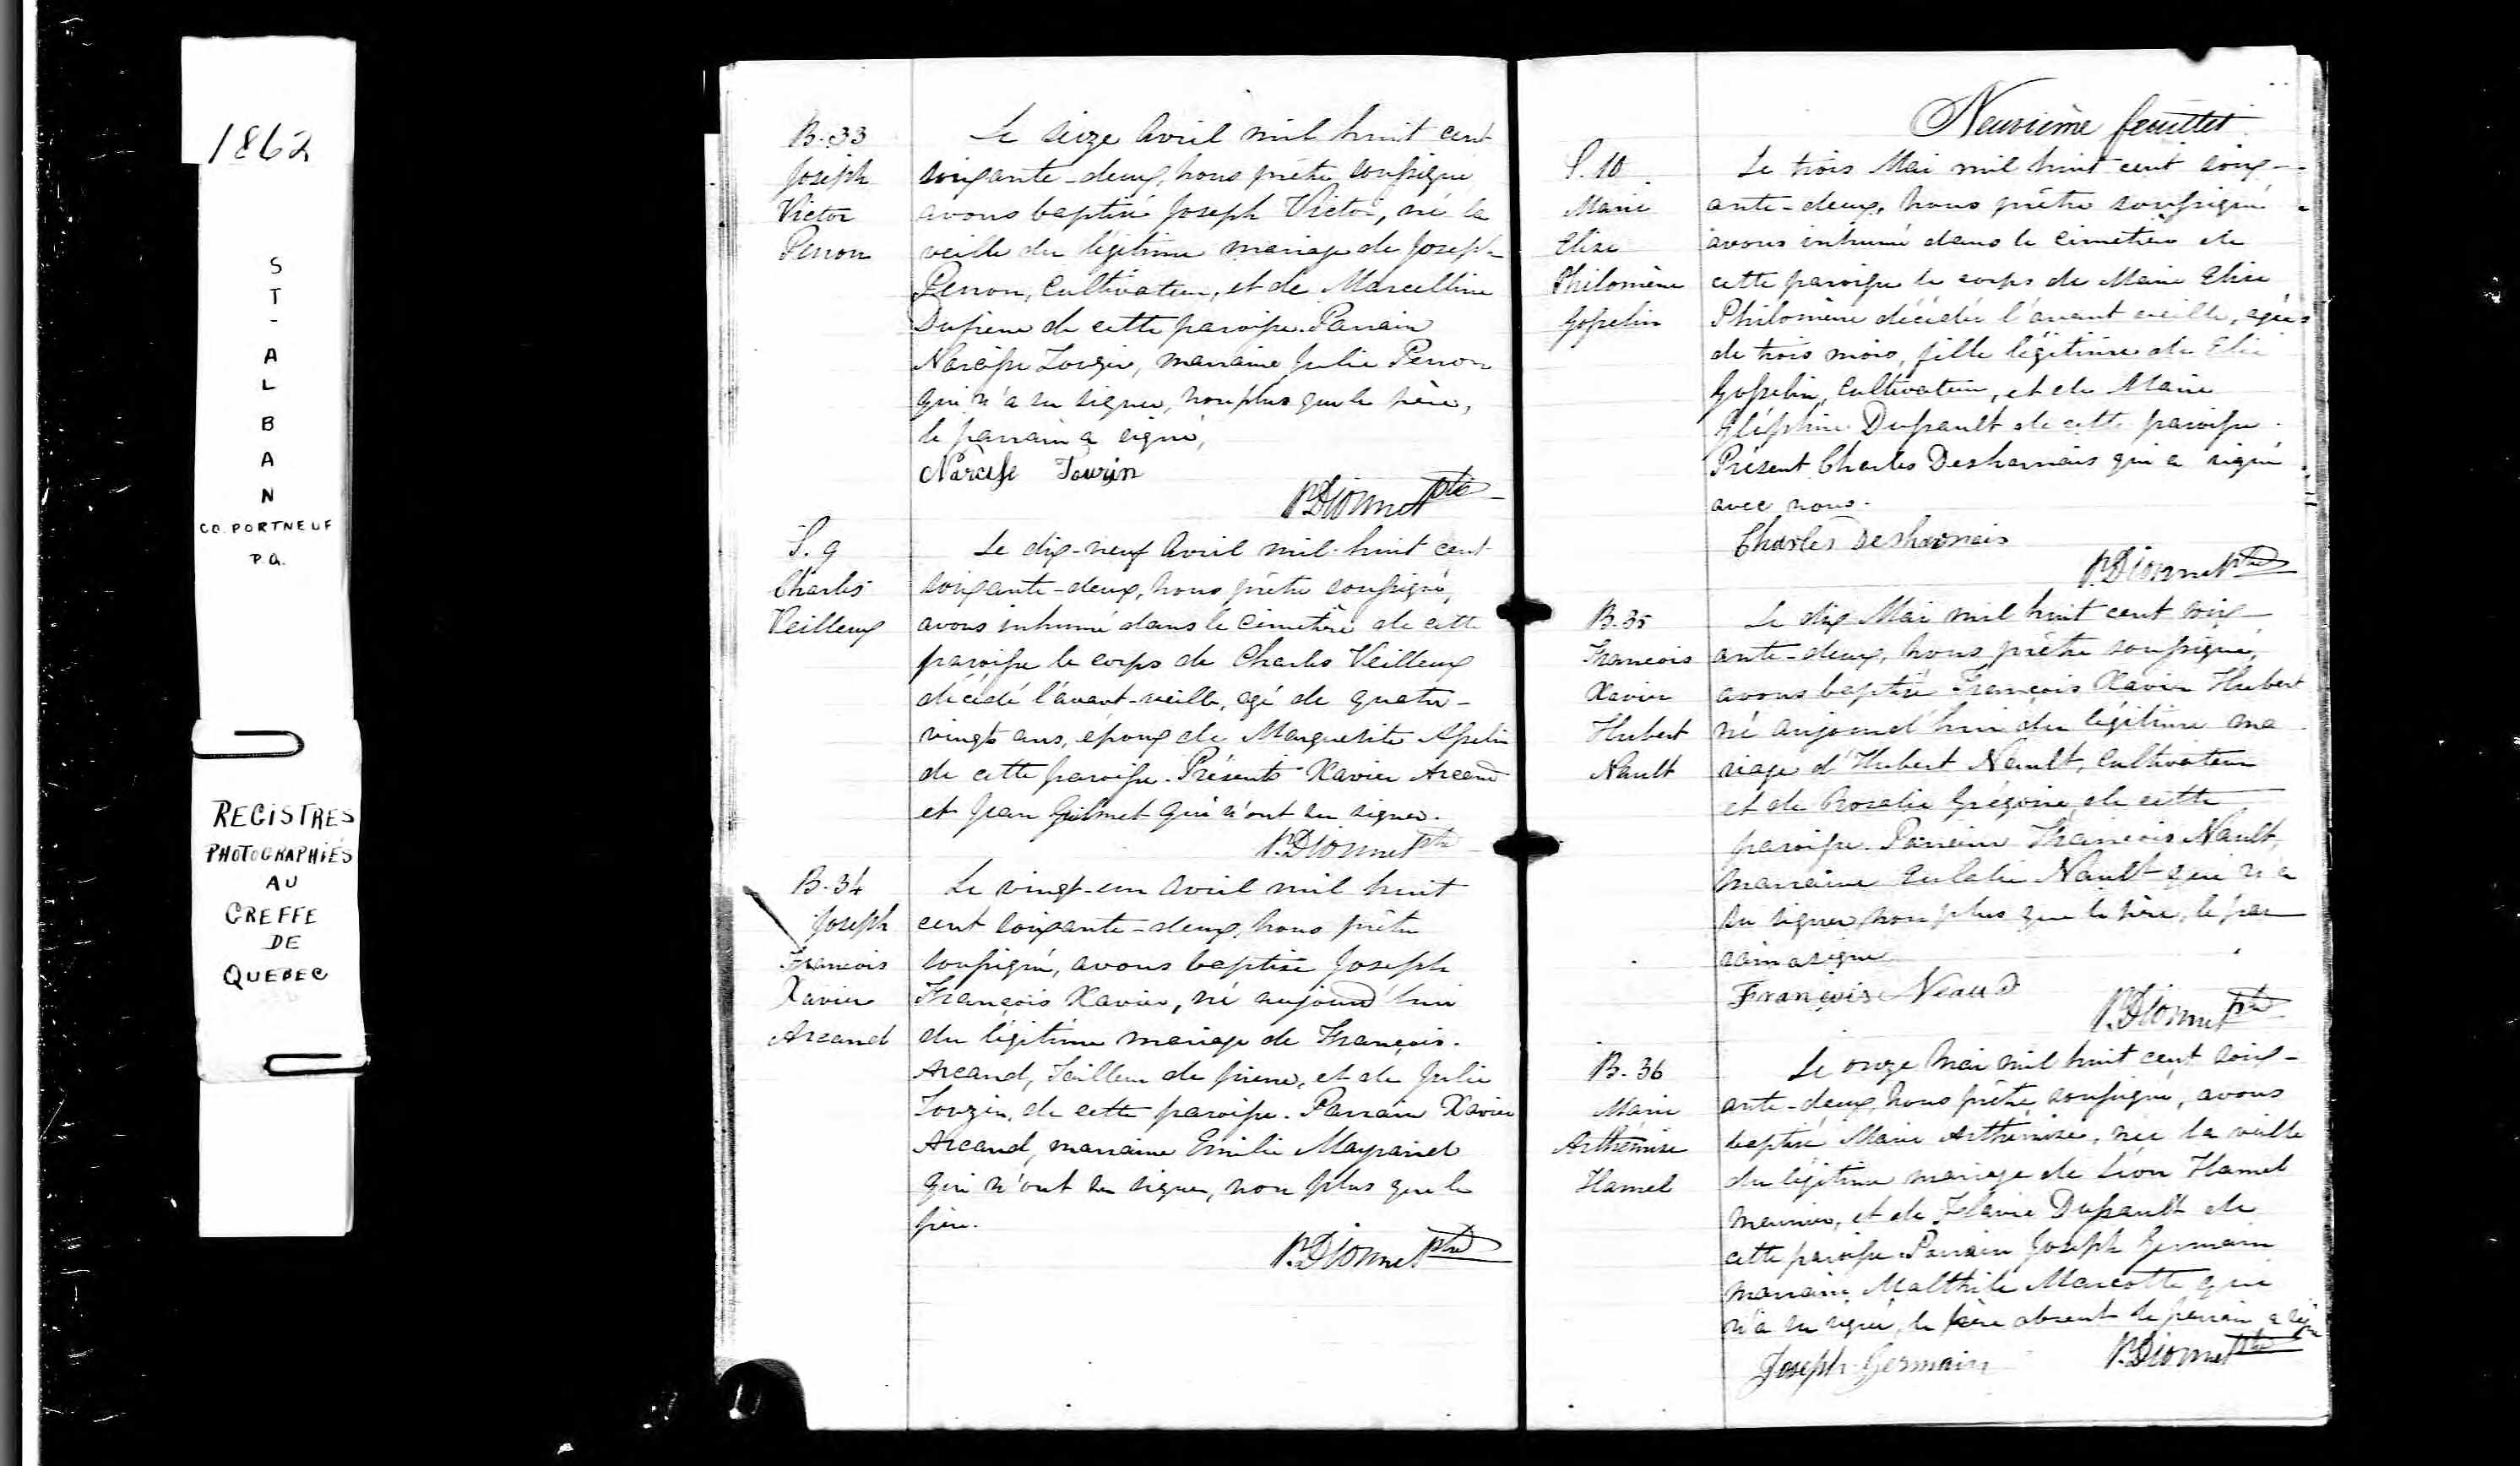 1862
ST-ALBAN
CO. PORTNEUF
P.Q.
REGISTRES
PHOTOGRAPHIÉS
AU
GREFFE
DE
QUEBEC
B. 33
Joseph
Victor
Perron
Le seize Avril mil huit cent
soixante-deux, nous prêtre soussigné
avons baptisé Joseph Victor, né la
veille du légitime mariage de Joseph
Perron, Cultivateur, et de Marcelline
Dufresne de cette paroisse. Parrain
Narcisse Louzin, marraine Julie Perron
qui n'a su signer, non plus que le père,
le parrain a signé,
Narcisse
P. Dionne Ptre
S. 9
Charles
Veilleux
Le dix-neuf Avril mil-huit cent
soixante-deux, nous prêtre soussigné,
avons inhumé dans le cimetière de cette
paroisse le corps de Charles Veilleux
décédé l'avant-veille, agé de quatre-
vingts ans, époux de Marguerite Asselin
de cette paroisse. Présents Xavier Arcand
et Jean Guilmet qui n'ont su signer.
P. Dionne Ptre
B. 34
Joseph
François
Xavier
Arcand
Le vingt-un Avril mil huit
cent soixante-deux, nous prêtre
soussigné, avons baptisé Joseph
François Xavier, né aujourd'hui
du légitime mariage de François
Arcand, Tailleur de pierre, et de Julie
Louzin, de cette paroisse. Parrain Xavier
Arcand, marraine Emilie Mayrand
qui n'ont su signer, non plus que le
père.
P. Dionne Ptre
Neuvième feuillet
S. 10
Marie
Elise
Philomène
Gosselin
Le trois Mai mil huit cent soix-
ante-deux, nous prêtre soussigné
avons inhumé dans le cimetière de
cette paroisse le corps de Marie Elise
Philomène décédée l'avant veille, agée
de trois mois, fille légitime de Elie
Gosselin, Cultivateur, et de Marie
Dussault de cette paroisse.
Présent Charles Desharnais qui a signé
avec nous.
Charles Desharnais
P. Dionne Ptre
B. 35
François
Xavier
Hubert
Nault
Le dix Mai mil huit cent soix-
ante-deux, nous prêtre soussigné,
avons baptisé François Xavier Hubert
né aujourd'hui du légitime ma
riage d'Hubert Nault, Cultivateur
et de Rosalie Grégoire de cette
paroisse. Parrain François Nault,
marraine Eulalie Nault qui n'a
su signer, non plus que le père, le par
rain a signé
François Neaud
P. Dionne Ptre
B. 36
Marie
Arthémise
Hamel
Le onze Mai mil huit cent soix-
ante-deux, nous prêtre soussigné, avons
baptisé Marie Arthémise, née la veille
du légitime mariage de Léon Hamel
meunier, et de Flavie Dussault de
cette paroisse. Parrain Joseph Germain
marraine Malthilde Marcotte qui
n'a su signer, le père absent le parrain a signé
Joseph Germain
P. Dionne Ptre